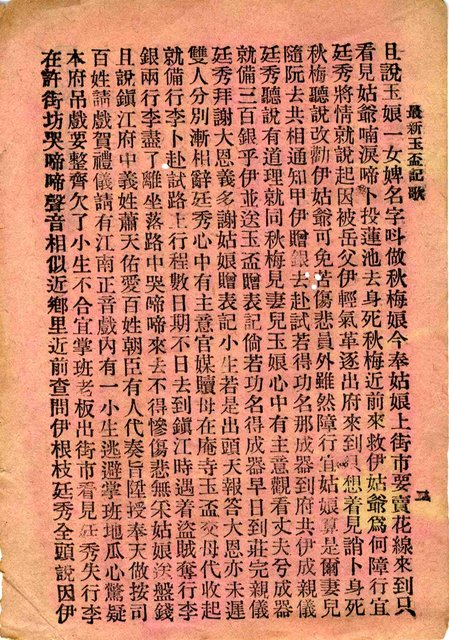 最新玉盃記歌
旦說玉娘一女婢名字呌做秋梅娘今奉姑娘上街市要賣花線來到只
看見姑爺喃淚啼卜投蓮池去身死秋梅近前來救伊姑爺爲何障行宜
廷秀將情就說起因被岳父伊輕氣革逐出府來到只想着見誚卜身死
秋梅聽說改勸伊姑爺可免苦傷悲員外雖然障行宜姑娘算是爾妻兒
隨阮去共相通知甲伊贈銀去赴試若得功名那成器到府共伊成親儀
廷秀聽說有道理就同秋梅見妻兒玉娘心中有主意觀看丈夫兮成器
就備三百銀乎伊並送玉盃贈表記偷若功名得成器早日到莊完親儀
廷秀拜謝大恩義多謝姑娘贈表記小生若是出頭天報答大恩亦未遲
雙人分別漸相辭廷秀心中有主意官媒贖母在庵寺玉盃交母代收起
就備行李卜赴試路上行程數日期不日去到鎮江時遇着盜賊奪行李
銀兩行李盡了離坐落路中哭啼啼來去不得慘傷悲無采姑娘送盤錢
且說鎮江府中義姓蕭天佑愛百姓朝臣有人代奏旨陞授奉天做按司
百姓請戲賀禮儀請有江南正音戲內有一小生逃避掌班地瓜心驚疑
本府吊戲要整齊欠了小生不合宜掌班老板出街市看見廷秀失行李
在許街坊哭啼啼聲音相似近鄉里近前查問伊根枝廷秀全頭說因伊